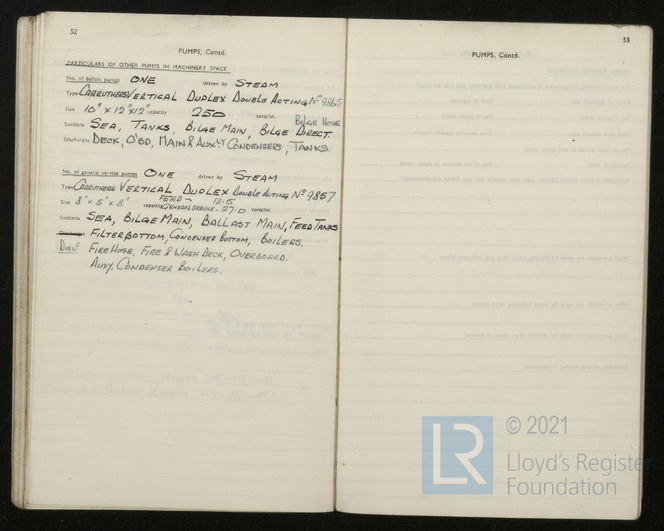 52
PUMPS, Contd.
PARTICULARS OF OTHER PUMPS IN MACHINERY SPACE
No. of ballast pumps ONE driven by STEAM
Type CARRUTHERS VERTICAL DUPLEX DOUBLE ACTING Nº 9865
Size 10" x 12" x 12" capacity 250 tons/hr. BILGE HOSE
Suctions SEA, TANKS, BILGE MAIN, BILGE DIRECT.
Discharges DECK, O'BD, MAIN & AUXLY CONDENSERS, TANKS.
No. of general service pumps ONE driven by STEAM
Type CARRUTHERS VERTICAL DUPLEX DOUBLE ACTING Nº 9857
FEED - 13.5
Size 8" x 5" x 8" capacity GENERAL SERVICE - 27.0 tons/hr.
Suctions SEA, BILGE MAIN, BALLAST MAIN, FEED TANKS
Discharges FILTER BOTTOM, CONDENSER BOTTOM, BOILERS.
FIRE HOSE, FIRE & WASH DECK, OVERBOARD.
AUXY. CONDENSER BOILERS.
53
PUMPS, Contd.
LR
© 2021
Lloyd's Register
Foundation